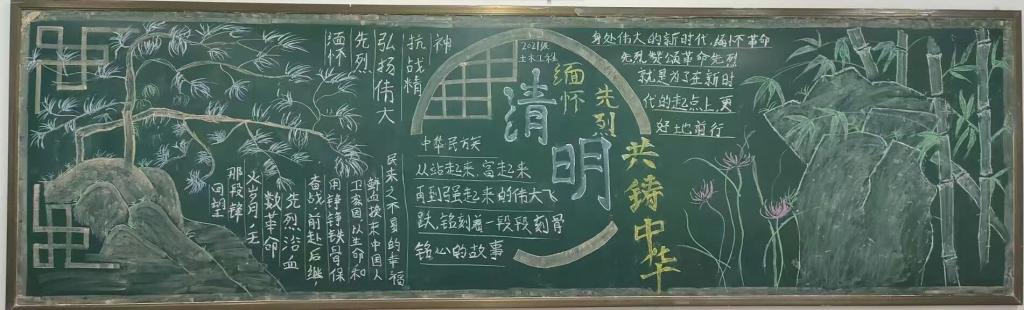 缅怀
先烈
弘扬伟大
抗战精
神
回望
那段锋
火岁月,无
数革命
先烈浴血
奋战,前赴后继,
用铮铮铁骨保
卫家国以生命和
鲜血换来中国人
民来之不易的幸福
2021级
清明
缅怀
先烈
共铸中华
中华民族
从站起来、富起来
再到强起来的伟大飞
跃,铭刻着一段段刻骨
铭心的故事
身处伟大的新时代,缅怀革命
先烈赞颂革命先烈
就是为了在新时
代的起点上更
好地前行